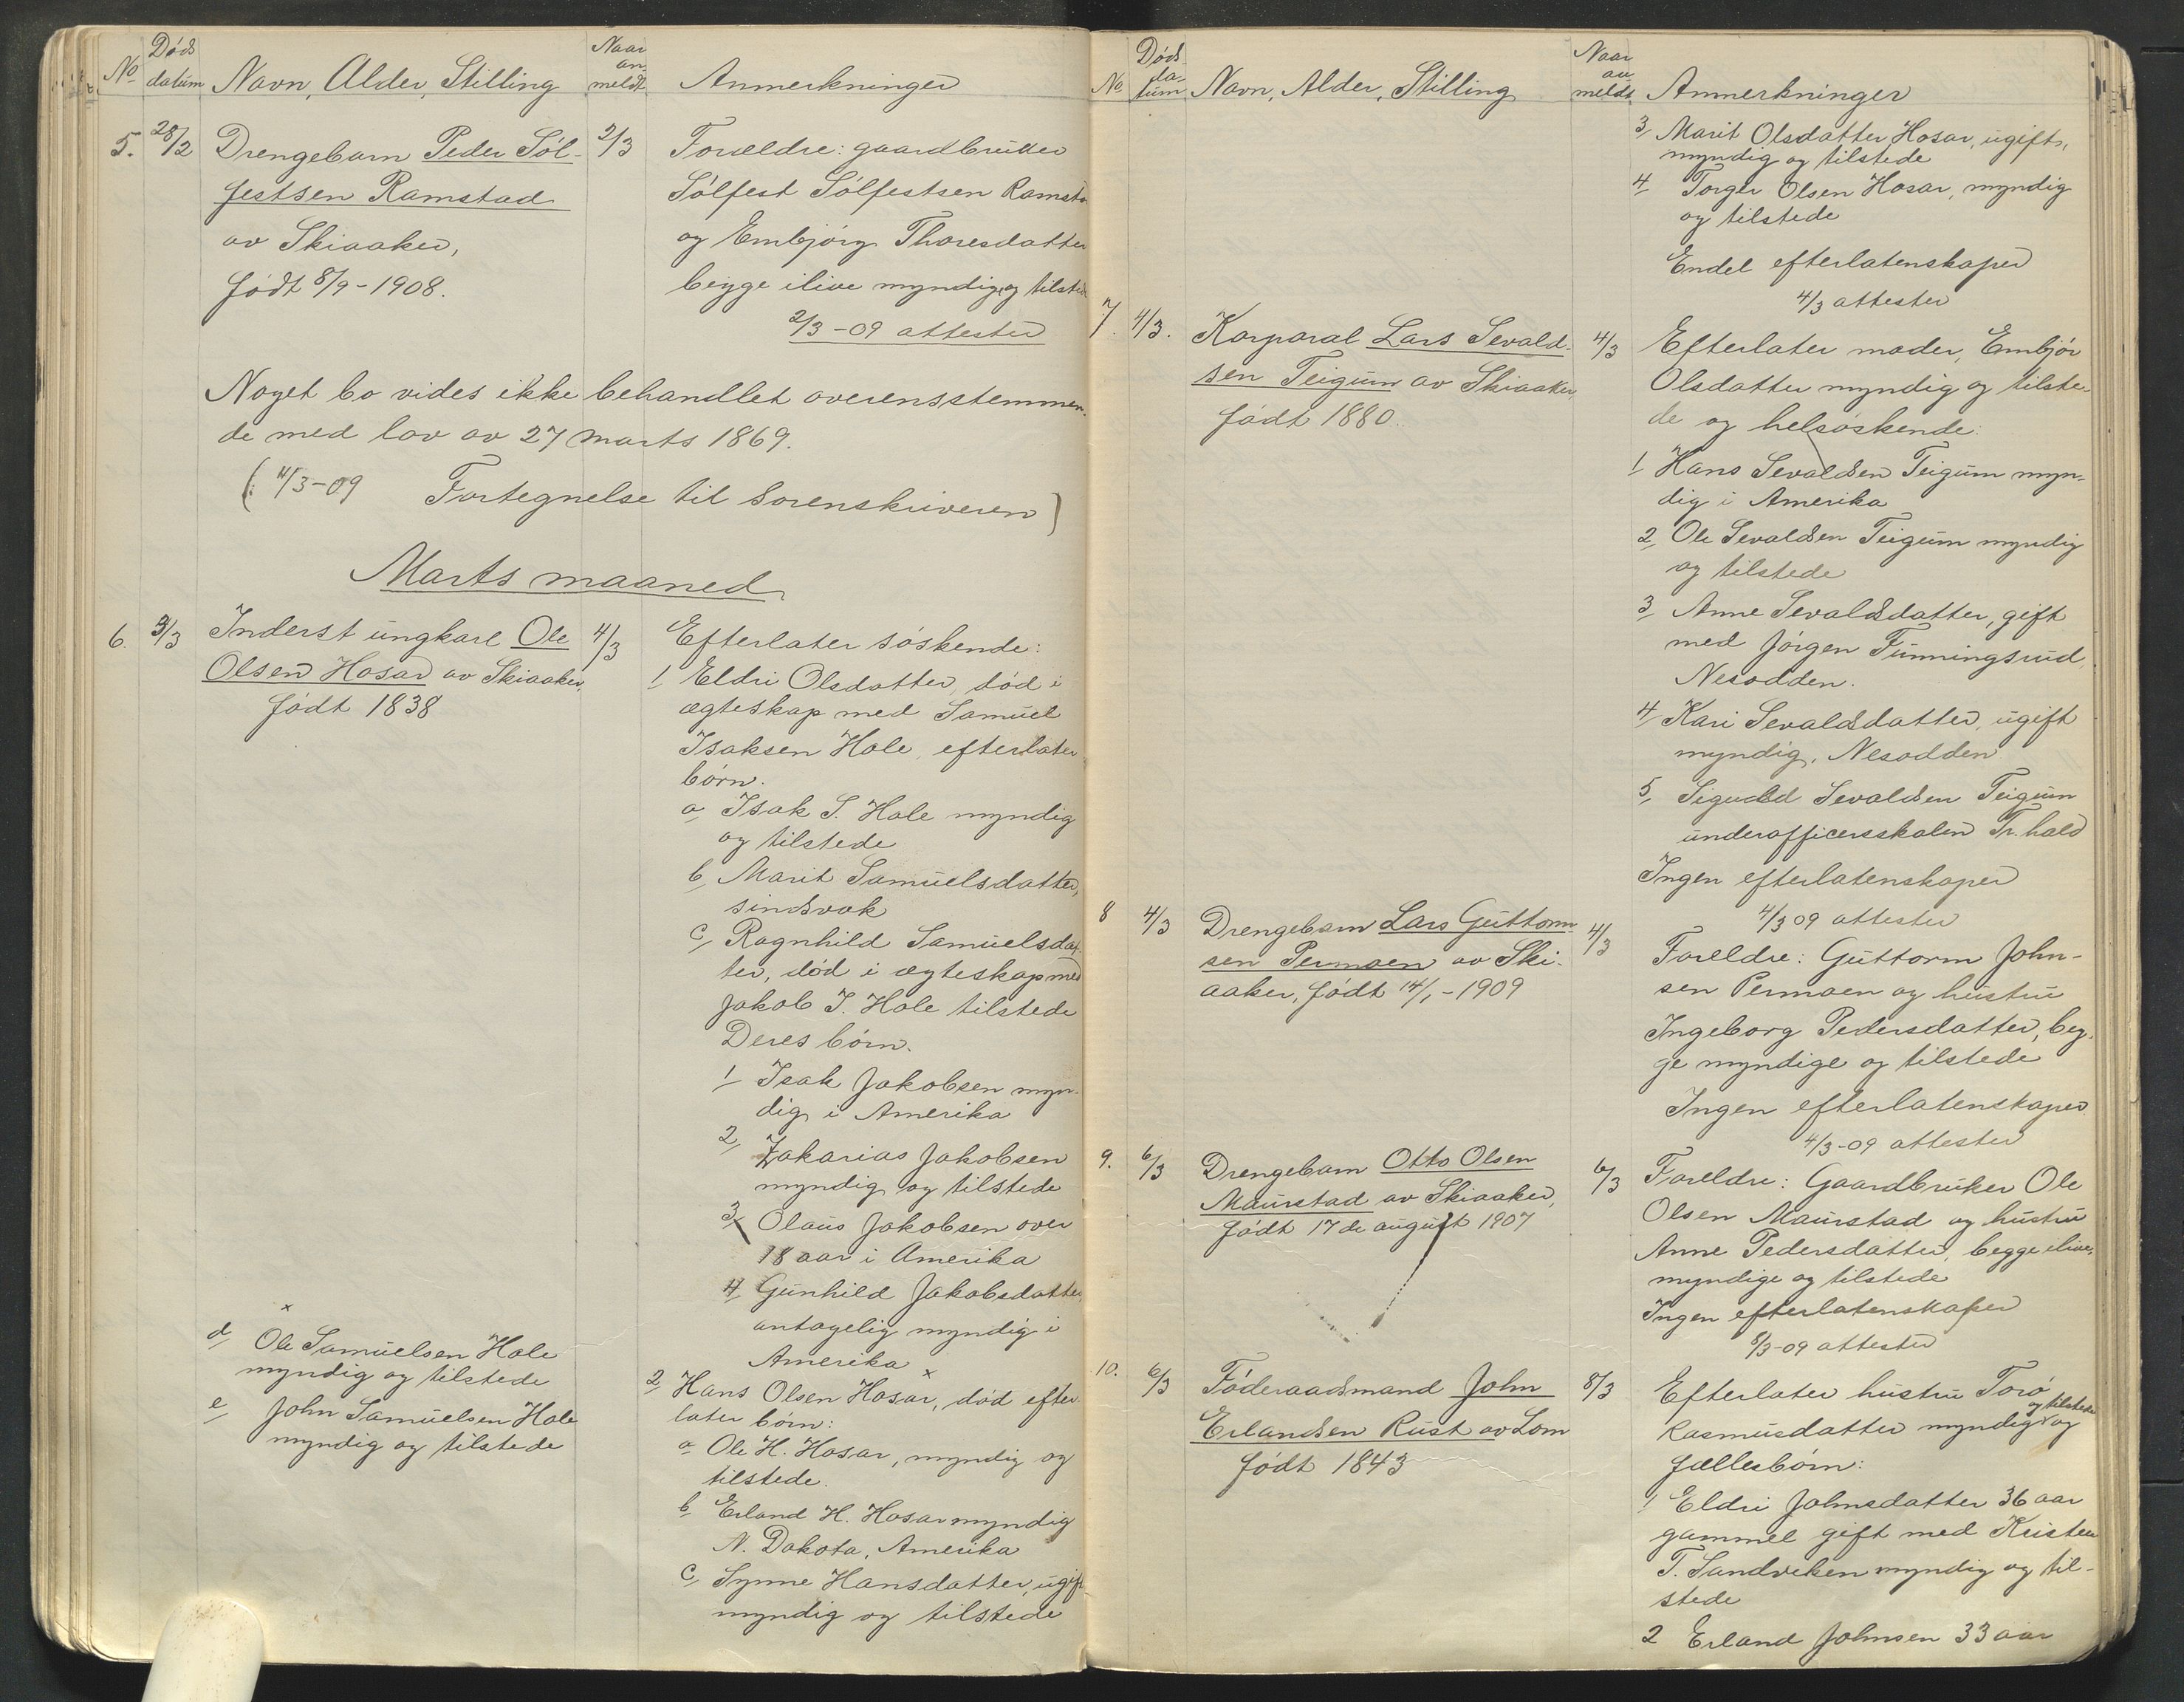 No
Døds
datum
Navn, Alder, Stilling
Naar
an-
meldt
Anmerkninger
5.
28/2
Drengebarn Peder Søl-
festsen Ramstad
av Skiaaker,
født 8/9-1908.
2/3
Forældre: gaardbruker
Sølfest Sølfestsen Ramstad
og Embjørg Thoresdatter
begge ilive myndig og tilstede
2/3-09 attester
Noget bo vides ikke behandlet overensstemmen-
de med lov av 27 marts 1869.
(4/3-09 Fortegnelse til Sorenskriveren)
Marts maaned
6.
3/3
Inderst ungkarl Ole
Olsen Hosar av Skiaaker,
født 1838
4/3
Efterlater søskende:
1 Eldri Olsdatter, død i
ægteskap med Samuel
Isaksen Hole, efterlater
børn.
a Isak S. Hole myndig
og tilstede
b Marit Samuelsdatter,
sindsvak
c Ragnhild Samuelsdat-
ter, død i ægteskap med
Jakob I. Hole tilstede
Deres børn.
1 Isak Jakobsen myn-
dig i Amerika
2 Zakarias Jakobsen
myndig og tilstede
3 Olaus Jakobsen over
18 aar i Amerika
4 Gunhild Jakobsdatter,
antagelig myndig i
Amerika x
x
d Ole Samuelsen Hole
myndig og tilstede
e John Samuelsen Hole
myndig og tilstede
2 Hans Olsen Hosar, død efter-
later børn:
a Ole H. Hosar, myndig og
tilstede.
b Erland H. Hosar myndig
N. Dakota, Amerika
c Synne Hansdatter, ugift
myndig og tilstede
No
Døds
da-
tum
Navn, Alder, Stilling
Naar
an-
meldt
Anmerkninger
3 Marit Olsdatter Hosar, ugift,
myndig og tilstede
4 Torger Olsen Hosar, myndig
og tilstede
Endel efterlatenskaper
4/3 attester
7
4/3.
Korporal Lars Sevald-
sen Teigum av Skiaaker,
født 1880.
4/3
Efterlater moder, Embjør
Olsdatter myndig og tilste-
de og helsøskende:
1 Hans Sevaldsen Teigum myn-
dig i Amerika
2 Ole Sevaldsen Teigum myndig
og tilstede
3 Anne Sevaldsdatter, gift
med Jørgen Funningsrud,
Nesodden.
4 Kari Sevaldsdatter, ugift
myndig, Nesodden
5 Sigvald Sevaldsen Teigum
underofficersskolen Tr.hald
Ingen efterlatenskaper
4/3 09 attester
8
4/3
Drengebarn Lars Guttorm-
sen Permoen av Ski-
aaker, født 14/1-1909
4/3
Foreldre: Guttorm John-
sen Permoen og hustru
Ingeborg Pedersdatter, beg-
ge myndige og tilstede
Ingen efterlatenskaper
4/3-09 attester
9.
6/3
Drengebarn Otto Olsen
Maurstad av Skiaaker,
født 17de august 1907
6/3
Foreldre: Gaardbruker Ole
Olsen Maurstad og hustru
Anne Pedersdatter, begge ilive,
myndige og tilstede
Ingen efterlatenskaper
8/3-09 attester
10.
6/3
Føderaadsmand John
Erlandsen Rust av Lom
født 1843
8/3
Efterlater hustru Torø
og tilstede
Rasmusdatter myndig og
fællesbørn:
1 Eldri Johnsdatter 36 aar
gammel gift med Kristen
T. Sandviken myndig og til-
stede
2 Erland Johnsen 33 aar